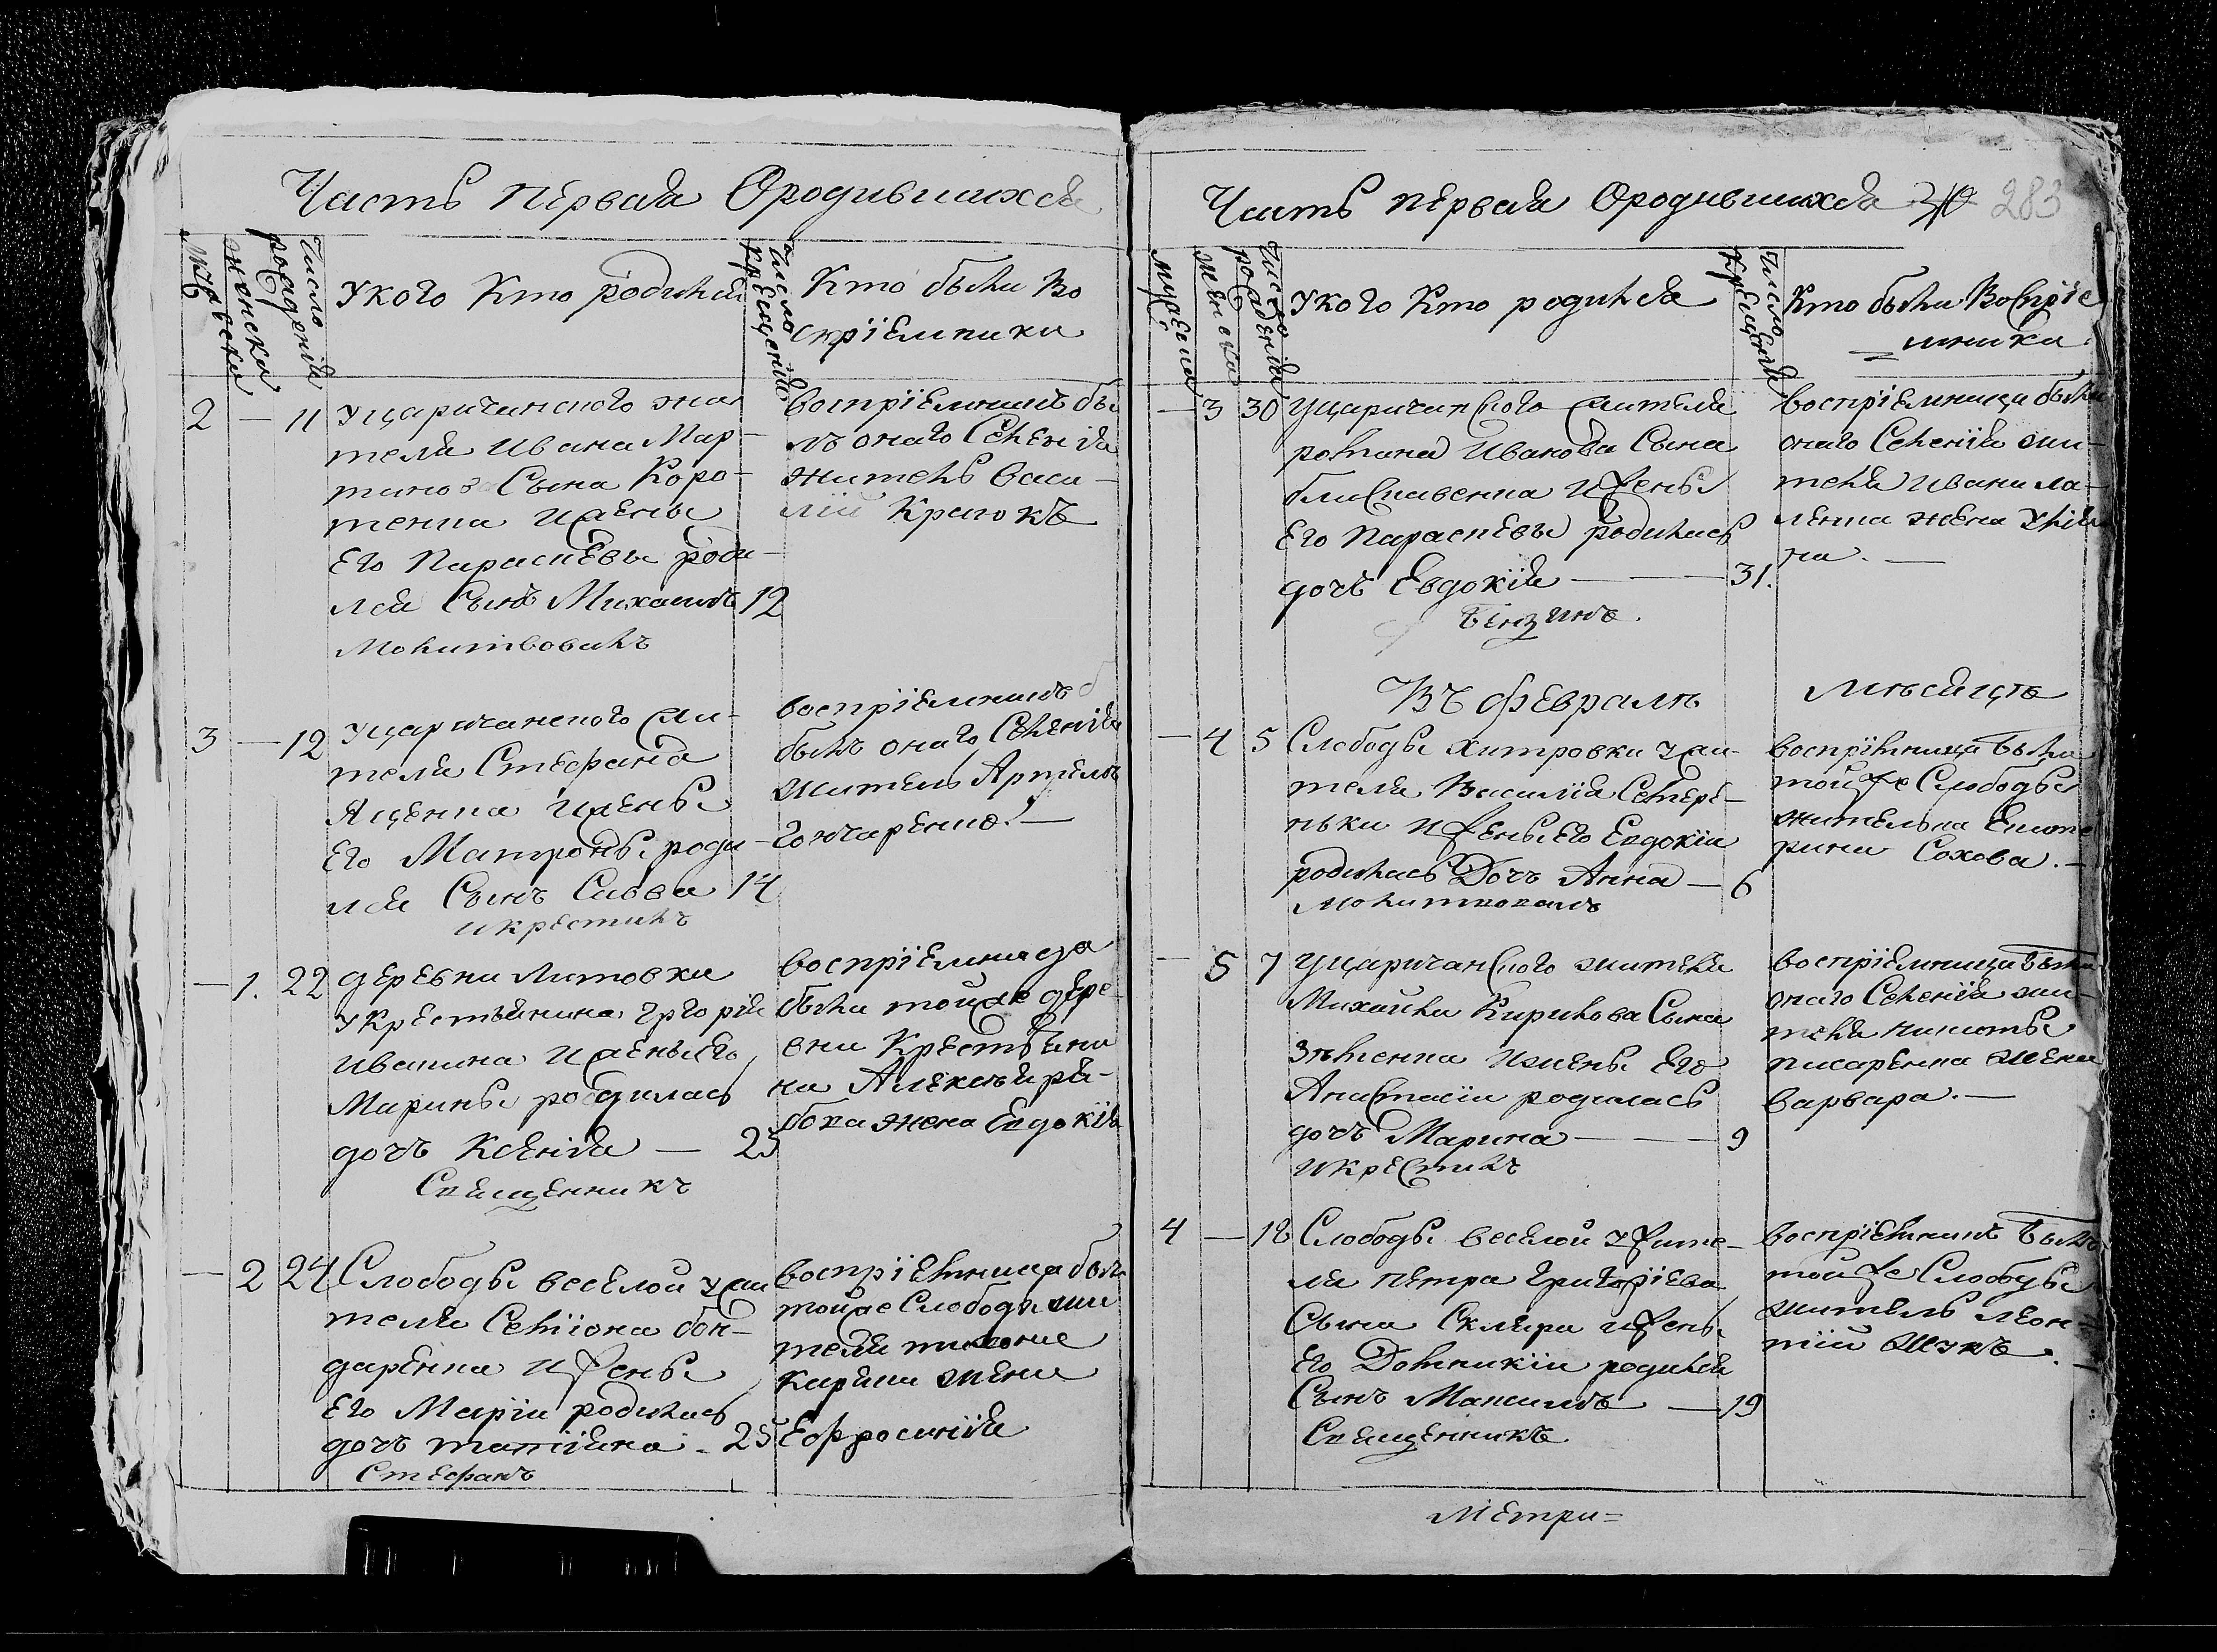 Часть первая Ородившихся
мужеска
женска
число
рождения
У кого Кто родился
число
крещения
Кто были Во
сприемники
2 — 11 Уцаричанского жи
теля Ивана Мар-
тинова Сына Коро-
тенка и жены
Его Параскевы роди-
лся Сынъ Михаилъ 12
Молитвовалъ
воспріемникъ бы
лъ онаго Селенія
житель васи-
лій
3 — 12 Уцаричанского жи-
теля Стефана
Яценка и жены
Его Матроны роди-
лся Сынъ Савва 14
и крестилъ
воспріемникъ
былъ онаго Селенія
житель Артемъ
Гончаренко. —
— 1. 22 деревни Литовки
у Крестьянина Григорія
Ивашина и жены Его
Марины родилась
дочь Ксенія — 25
Священникъ
воспріемница
была той же дере-
вни Крестьяни
на Алексѣя ри-
бока жена Евдокія
— 2 24 Слободы веселой у жи
теля Семіона бон-
даренка и жены
Его Маріи родилась
дочь татіяна - 25
Стефанъ
воспріемница была
той же Слободы жи
теля
жена
Ефросинія
Часть первая Ородившихся 283
мужеска
женска
число
рожденія
У кого Кто родился
Число
Крещенія
Кто были Воспріе
мники
— 3 30 Уцаричанского жителя
романа Иванова Сына
близнавенка и жены
Его Параскевы родилась
дочь Евдокія — 31.
воспріемница была
онаго Селенія жи-
теля Ивана ла-
жена Улія
на. —
Въ Февралѣ Мѣсяцѣ
— 4 5 Слободы хитровки у жи-
теля Василія Семере-
ньки и жены Его Евдокіи
родилась Дочь Анна — 6
Молитвовалъ
воспріемница была
той же Слободы
жителька Екате
рина Сохова. —
— 5 7 Уцаричанского жителя
Михайла Кирилова Сына
и жены Его
Анастасіи родилась
дочь Марина — 9
и крестилъ
воспріемница была
онаго Селенія жи-
теля Никиты
писаренка жена
варвара. —
4 — 18 Слободы веселой у жите-
ля петра григоріева
Сына Скляра и жены
Его Домникіи родился
Сынъ Максимъ — 19
Священникъ
воспріемникъ былъ
той же Слободы
житель леон-
тій Жукъ. —
Метри=